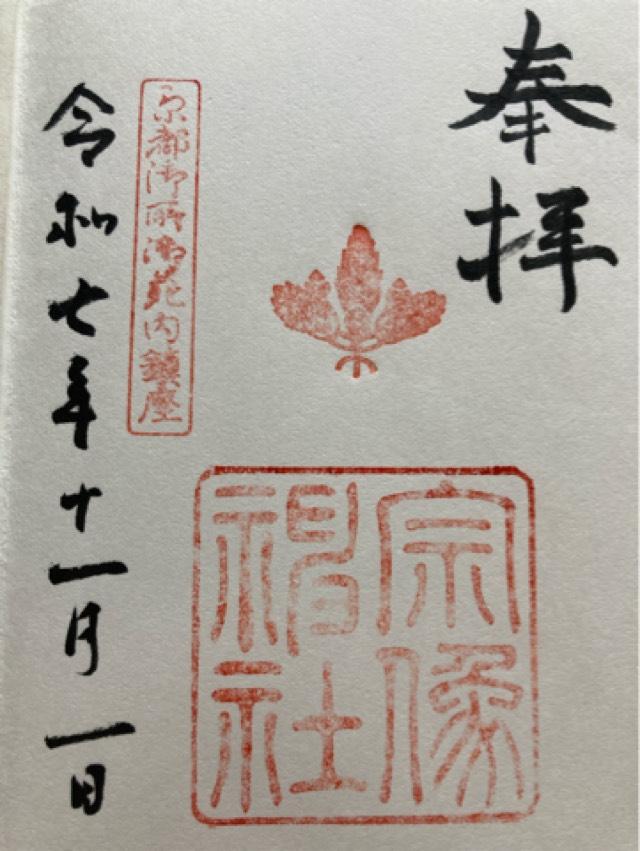 奉拝
宗像
神社
京都御所御苑内鎮座
令和七年十一月一日